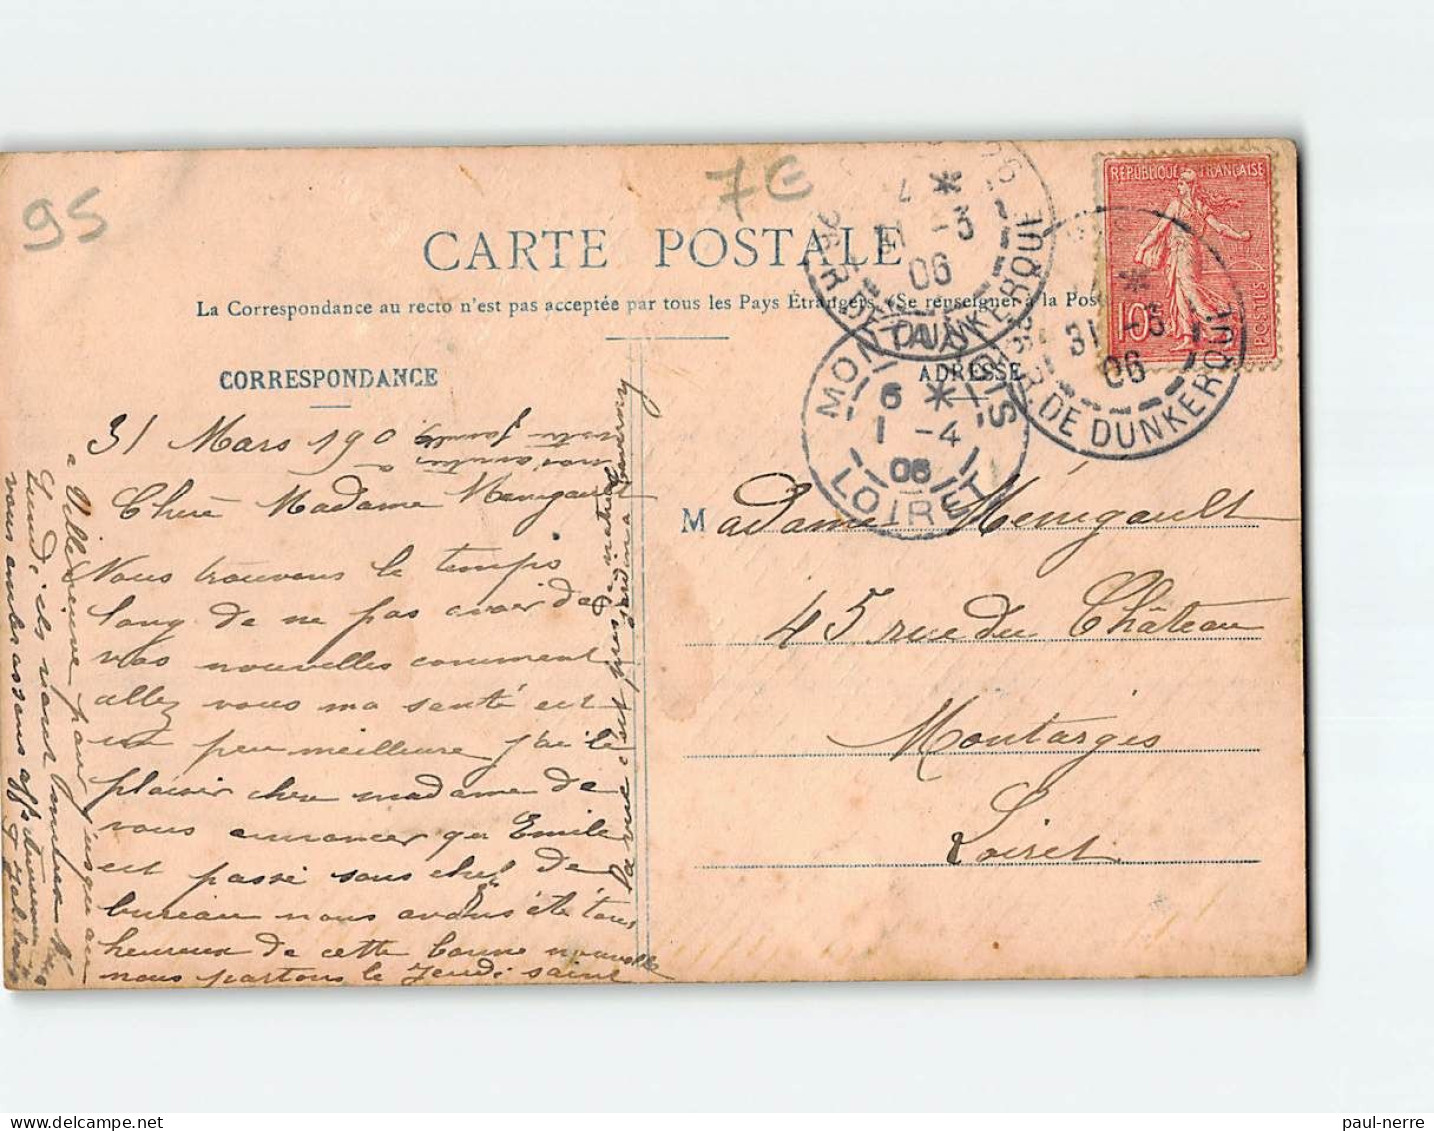 95
7€
CARTE POSTALE
La Correspondance au recto n'est pas acceptée par tous les Pays Étrangers (Se renseigner à la Pos
CORRESPONDANCE
ADRESSE
RÉPUBLIQUE FRANÇAISE
10
POSTES
7 *
31 -3
06
R. DE DUNKERQUE
*
31 -3
06
R. DE DUNKERQUE
MONTARGIS
6 *
1 -4
06
LOIRET
31 Mars 190
Chère Madame Menigault
Nous trouvons le temps
long de ne pas avoir de
vos nouvelles comment
allez vous ma santé est
un peu meilleure j'ai le
plaisir chère madame de
vous annoncer que Emile
est passé sous chef de
bureau nous avons été tous
heureux de cette bonne nouvelle
nous partons le Jeudi saint
a Villeneuve pour jusqu'au
Lundi ils vont
vous embrassons
la vue c'est pris
jardin a
Madame Ménigault
45 rue du Château
Montargis
Loiret
paul-nerre